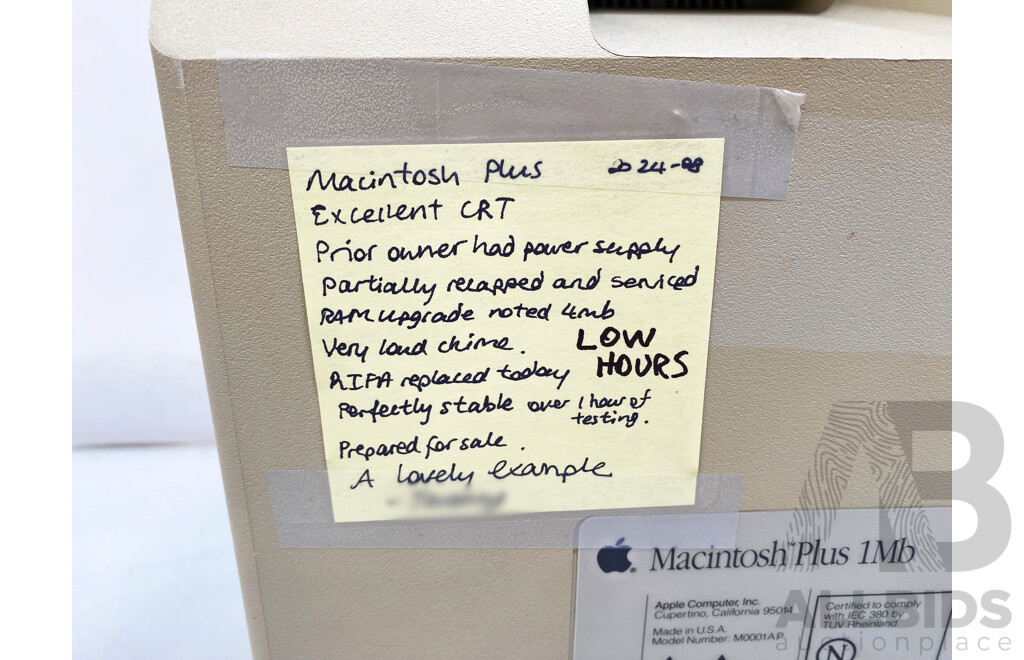 Macintosh Plus 2024-08
Excellent CRT
Prior owner had power supply
Partially recapped and serviced
RAM upgrade noted 4mb
Very loud chime. LOW
HOURS
RIFA replaced today
Perfectly stable over 1 hour of
testing.
Prepared for sale.
A lovely example
Macintosh™Plus 1Mb
Apple Computer, Inc.
Cupertino, California 95014
Made in U.S.A.
Model Number: M0001AP
Certified to comply
with IEC 380 by
TUV Rheinland
N
AB
ALLBIDS
auctionplace